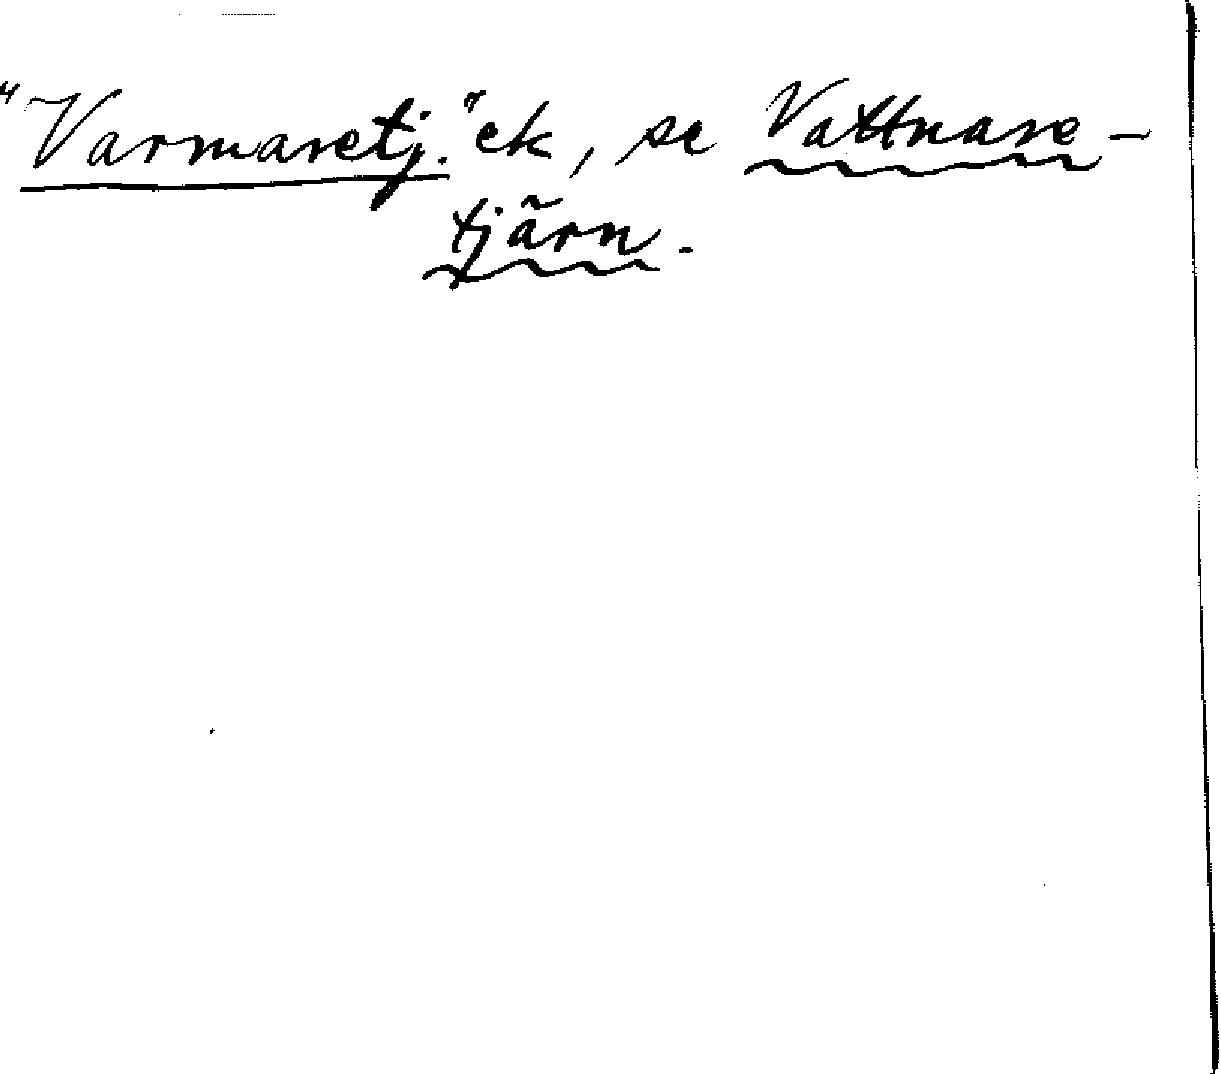 "Varmasetj." ek, se Vattnase-
tjärn.